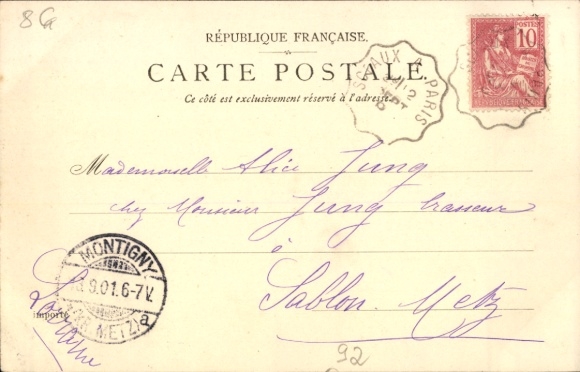 86a
RÉPUBLIQUE FRANÇAISE.
CARTE POSTALE.
Ce côté est exclusivement réservé à l'adresse.
POSTES
10
RÉPUBLIQUE FRANÇAISE
SCEAUX A PARIS
Mademoiselle Alice Jung
chez Monsieur Jung brasseur
à
Sablon. Metz
MONTIGNY
9.01.6-7V.
METZ) a
Lorraine
importe
92